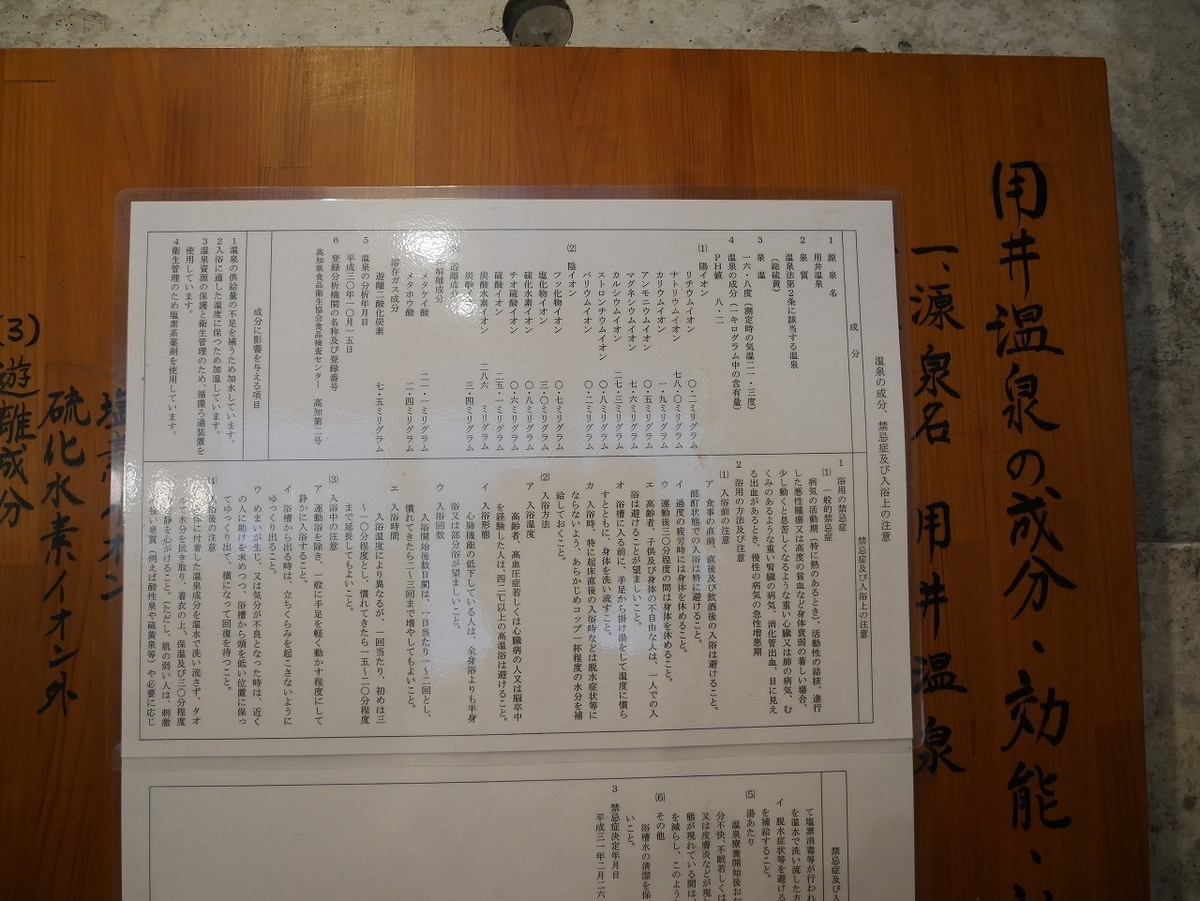 用井温泉の成分・効能・
一、源泉名 用井温泉
硫化水素イオン外
(3)遊離成分
温泉の成分、禁忌症及び入浴上の注意
成分
1 源泉名
用井温泉
2 泉質
温泉法第2条に該当する温泉
(総硫黄)
3 泉温
一六・八度(測定時の気温二一・三度)
4 温泉の成分(一キログラム中の含有量)
PH値 八・二
(1) 陽イオン
リチウムイオン 〇・二ミリグラム
ナトリウムイオン 七八・〇ミリグラム
カリウムイオン 一・九ミリグラム
アンモニウムイオン 〇・五ミリグラム
マグネシウムイオン 七・六ミリグラム
カルシウムイオン 二七・三ミリグラム
ストロンチウムイオン 〇・八ミリグラム
バリウムイオン 〇・二ミリグラム
(2) 陰イオン
フッ化物イオン 〇・七ミリグラム
塩化物イオン 三・〇ミリグラム
硫化水素イオン 〇・八ミリグラム
チオ硫酸イオン 〇・六ミリグラム
硫酸イオン 二五・一ミリグラム
炭酸水素イオン 二八六 ミリグラム
炭酸 三・四ミリグラム
遊離成分
解離成分
メタケイ酸 二一・一ミリグラム
メタホウ酸 二・四ミリグラム
溶存ガス成分
遊離二酸化炭素 七・五ミリグラム
5 温泉の分析年月日
平成三〇年一〇月一五日
6 登録分析機関の名称及び登録番号
高知県食品衛生協会食品検査センター 高知第二号
成分に影響を与える項目
1 温泉の供給量の不足を補うため加水しています。
2 入浴に適した温度に保つため加温しています。
3 温泉資源の保護と衛生管理のため、循環ろ過装置を
使用しています。
4 衛生管理のため塩素系薬剤を使用しています。
禁忌症及び入浴上の注意
1 浴用の禁忌症
(1) 一般的禁忌症
病気の活動期(特に熱のあるとき)、活動性の結核、進行
した悪性腫瘍又は高度の貧血など身体衰弱の著しい場合、
少し動くと息苦しくなるような重い心臓又は肺の病気、む
くみのあるような重い腎臓の病気、消化管出血、目に見え
る出血があるとき、慢性の病気の急性増悪期
2 浴用の方法及び注意
(1) 入浴前の注意
ア 食事の直前、直後及び飲酒後の入浴は避けること。
酩酊状態での入浴は特に避けること。
イ 過度の疲労時には身体を休めること。
ウ 運動後三〇分程度の間は身体を休めること。
エ 高齢者、子供及び身体の不自由な人は、一人での入
浴は避けることが望ましいこと。
オ 浴槽に入る前に、手足から掛け湯をして温度に慣ら
すとともに、身体を洗い流すこと。
カ 入浴時、特に起床直後の入浴時などは脱水症状等に
ならないよう、あらかじめコップ一杯程度の水分を補
給しておくこと。
(2) 入浴方法
ア 入浴温度
高齢者、高血圧症若しくは心臓病の人又は脳卒中
を経験した人は、四二℃以上の高温浴は避けること。
イ 入浴形態
心肺機能の低下している人は、全身浴よりも半身
浴又は部分浴が望ましいこと。
ウ 入浴回数
入浴開始後数日間は、一日当たり一~二回とし、
慣れてきたら二~三回まで増やしてもよいこと。
エ 入浴時間
入浴温度により異なるが、一回当たり、初めは三
~一〇分程度とし、慣れてきたら一五~二〇分程度
まで延長してもよいこと。
(3) 入浴中の注意
ア 運動浴を除き、一般に手足を軽く動かす程度にして
静かに入浴すること。
イ 浴槽から出る時は、立ちくらみを起こさないように
ゆっくり出ること。
ウ めまいが生じ、又は気分が不良となった時は、近く
の人に助けを求めつつ、浴槽から頭を低い位置に保っ
てゆっくり出て、横になって回復を待つこと。
(4) 入浴後の注意
体に付着した温泉成分を温水で洗い流さず、タオ
ルで水分を拭き取り、着衣の上、保温及び三〇分程度
安静を心がけること。(ただし、肌の弱い人は、刺激
の強い泉質(例えば酸性泉や硫黄泉等)や必要に応じ
禁忌症及び入
て塩素消毒等が行われ
を温水で洗い流した方
イ 脱水症状等を避ける
を補給すること。
(5) 湯あたり
温泉療養開始後おお
分不快、不眠若しくは
又は皮膚炎などが現
態が現れている間は、
を減らし、このよう
(6) その他
浴槽水の清潔を保
いこと。
3 禁忌症決定年月日
平成三一年二月二六